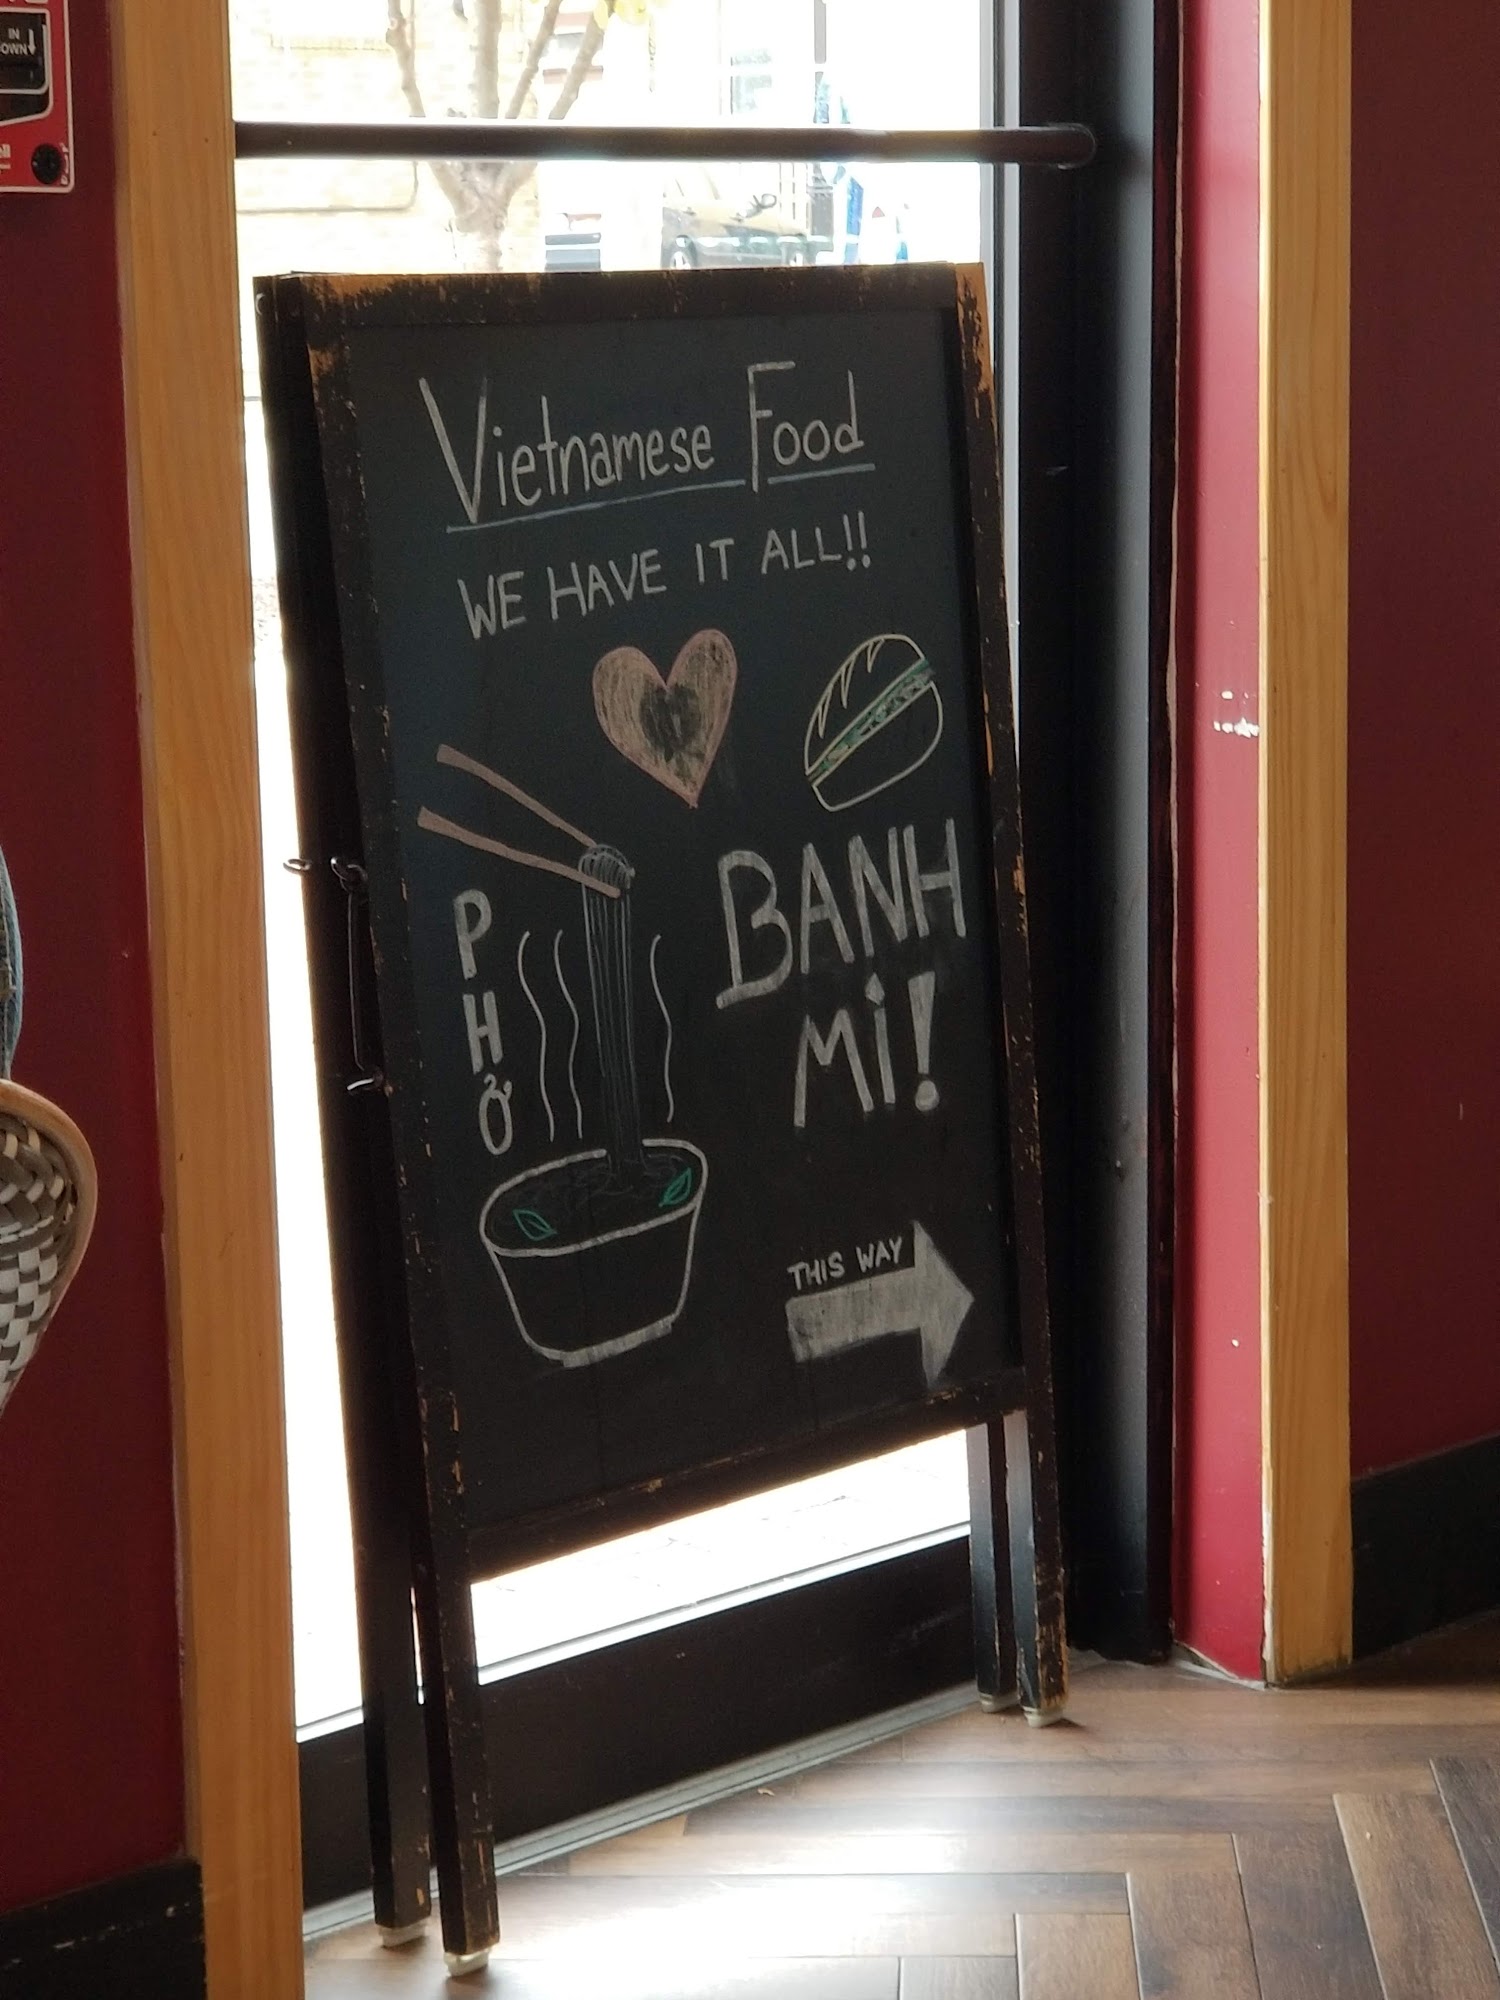 IN
Vietnamese Food
WE HAVE IT ALL!!
PHỞ
BANH
Mi!
THIS WAY